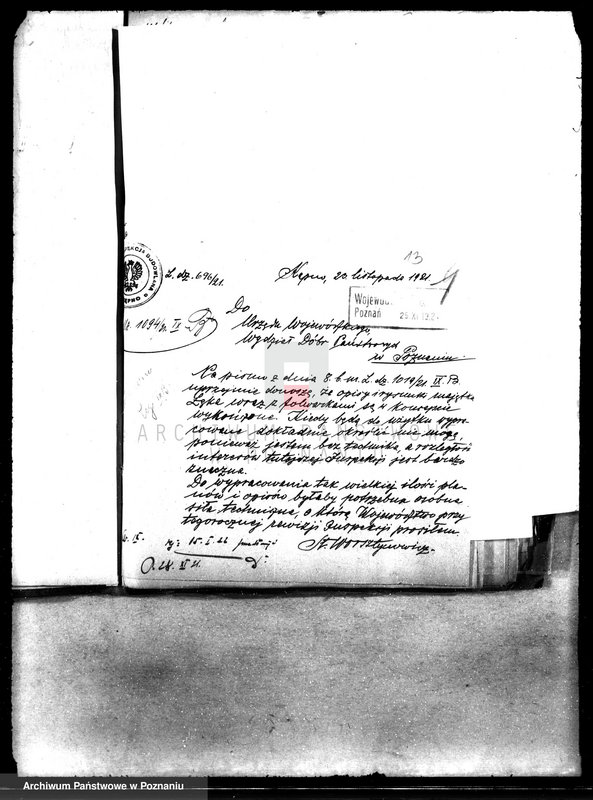 13
L. dz. 696/21.
Kępno, 23 listopada 1921.
Wojewódz
Poznań 25.XI.192
Do
Urzędu Wojewódzkiego,
Wydział Dóbr Państwowych
w Poznaniu.
1094/21 IX
Na pismo z dnia 8. b. m. L. dz. 1019/21. IX. B.
uprzejmie donoszę, że opisy i rysunki majątku
Łęka wraz z folwarkami są w koncepcie
wykończone. Kiedy będą do użytku wypra-
cowane dokładnie określić nie mogę,
ponieważ jestem bez technika, a rozległość
interesów tutejszej Inspekcji jest bardzo
znaczna.
Do wypracowania tak wielkiej ilości pla-
nów i opisów byłaby potrzebna osobna
siła techniczna, o którą Województwo przy
tegorocznej rewizji Inspekcji prosiłem.
St. Worsztynowicz.
ARCHIWUM PAŃSTWOWE
W POZNANIU
Archiwum Państwowe w Poznaniu